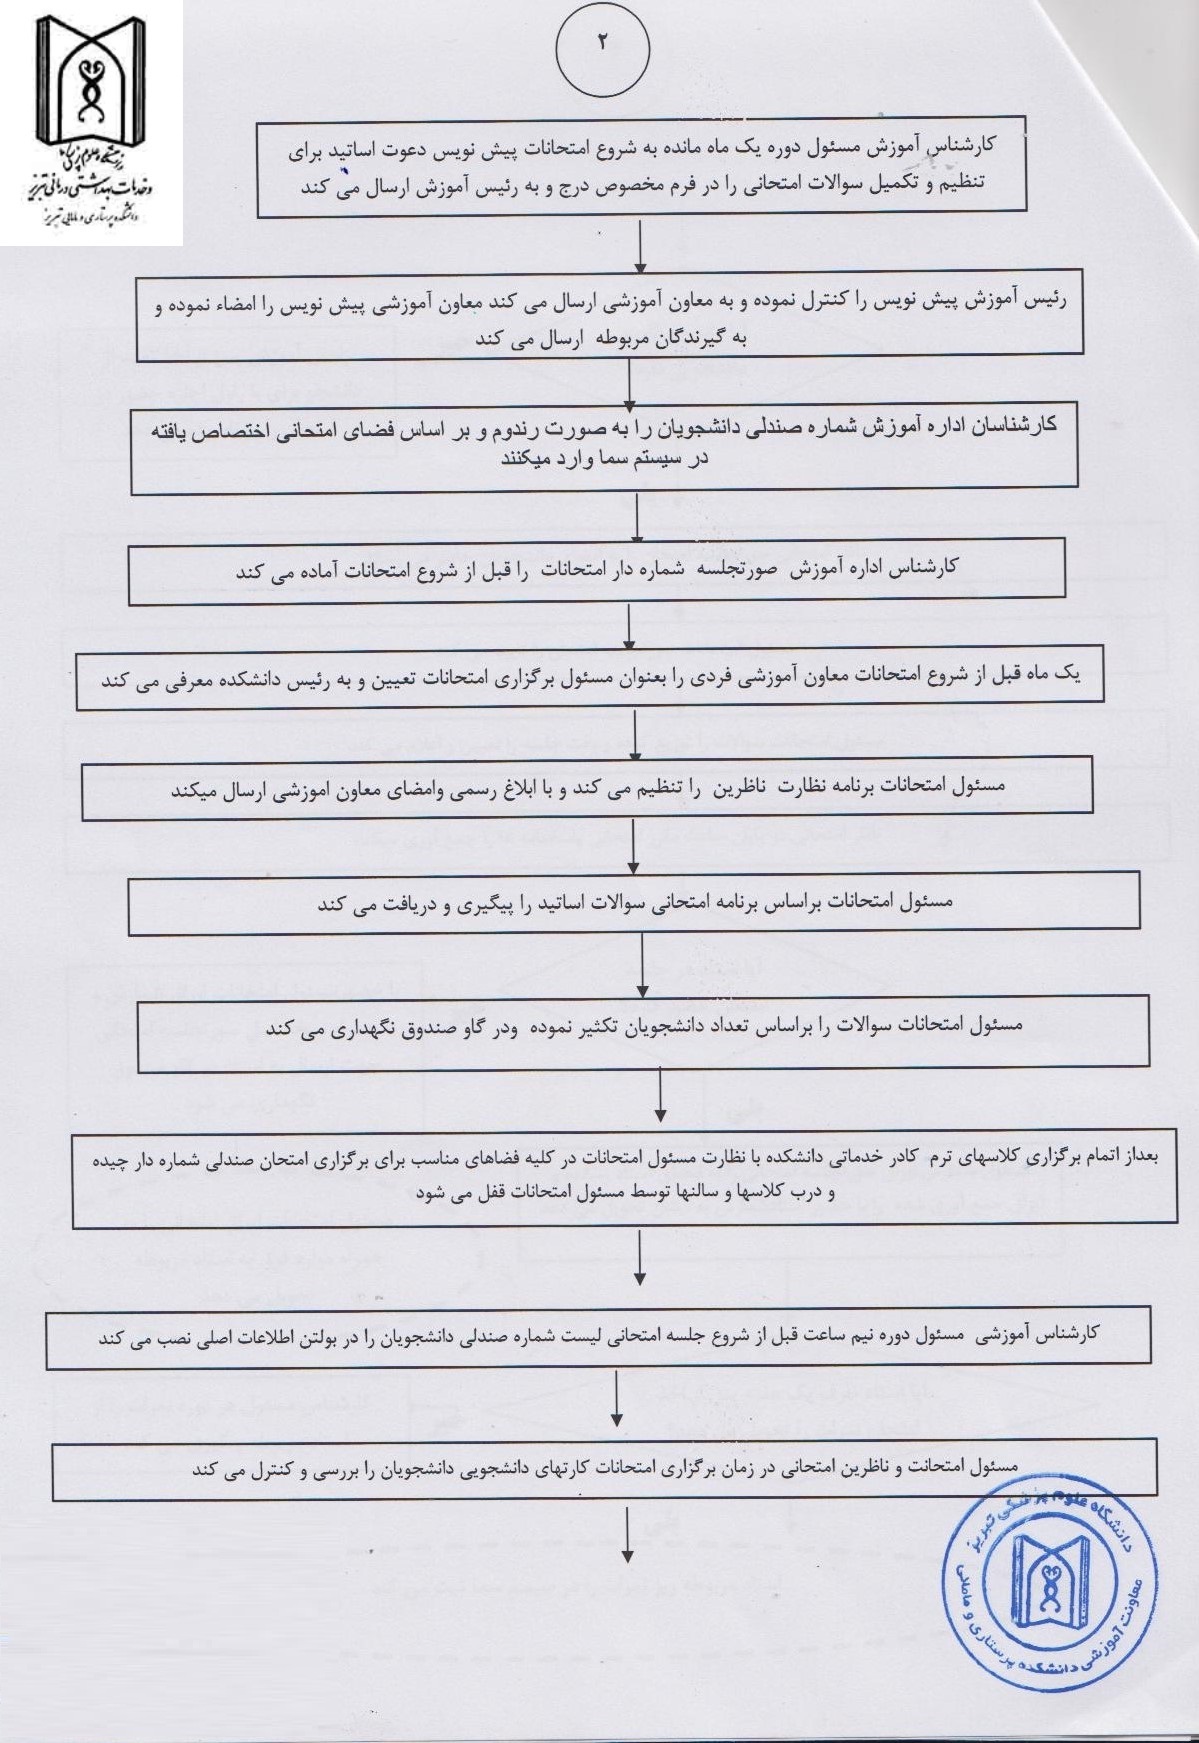 ۲
دانشگاه علوم پزشکی
و خدمات بهداشتی درمانی تبریز
دانشکده پرستاری و مامایی تبریز
کارشناس آموزش مسئول دوره یک ماه مانده به شروع امتحانات پیش نویس دعوت اساتید برای
تنظیم و تکمیل سوالات امتحانی را در فرم مخصوص درج و به رئیس آموزش ارسال می کند
رئیس آموزش پیش نویس را کنترل نموده و به معاون آموزشی ارسال می کند معاون آموزشی پیش نویس را امضاء نموده و
به گیرندگان مربوطه ارسال می کند
کارشناسان اداره آموزش شماره صندلی دانشجویان را به صورت رندوم و بر اساس فضای امتحانی اختصاص یافته
در سیستم سما وارد میکنند
کارشناس اداره آموزش صورتجلسه شماره دار امتحانات را قبل از شروع امتحانات آماده می کند
یک ماه قبل از شروع امتحانات معاون آموزشی فردی را بعنوان مسئول برگزاری امتحانات تعیین و به رئیس دانشکده معرفی می کند
مسئول امتحانات برنامه نظارت ناظرین را تنظیم می کند و با ابلاغ رسمی وامضای معاون اموزشی ارسال میکند
مسئول امتحانات براساس برنامه امتحانی سوالات اساتید را پیگیری و دریافت می کند
مسئول امتحانات سوالات را براساس تعداد دانشجویان تکثیر نموده ودر گاو صندوق نگهداری می کند
بعداز اتمام برگزاری کلاسهای ترم کادر خدماتی دانشکده با نظارت مسئول امتحانات در کلیه فضاهای مناسب برای برگزاری امتحان صندلی شماره دار چیده
و درب کلاسها و سالنها توسط مسئول امتحانات قفل می شود
کارشناس آموزشی مسئول دوره نیم ساعت قبل از شروع جلسه امتحانی لیست شماره صندلی دانشجویان را در بولتن اطلاعات اصلی نصب می کند
مسئول امتحانت و ناظرین امتحانی در زمان برگزاری امتحانات کارتهای دانشجویی دانشجویان را بررسی و کنترل می کند
دانشگاه علوم پزشکی تبریز
معاونت آموزشی دانشکده پرستاری و مامائی